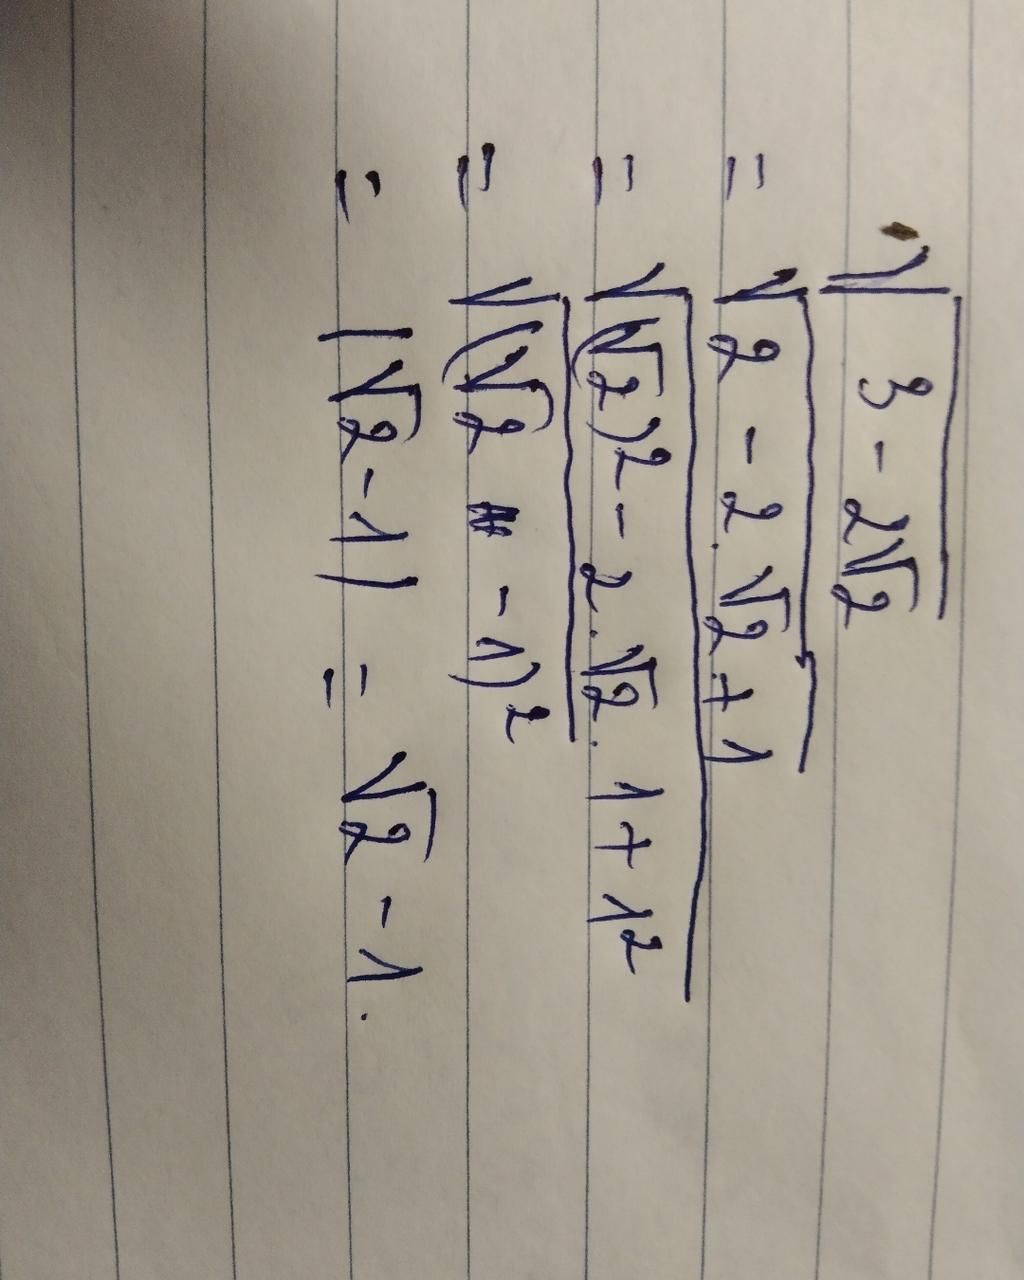 √(3 - 2√2)
= √(2 - 2.√2 + 1)
= √((√2)² - 2.√2.1 + 1²)
= √((√2 - 1)²)
= |√2 - 1| = √2 - 1.